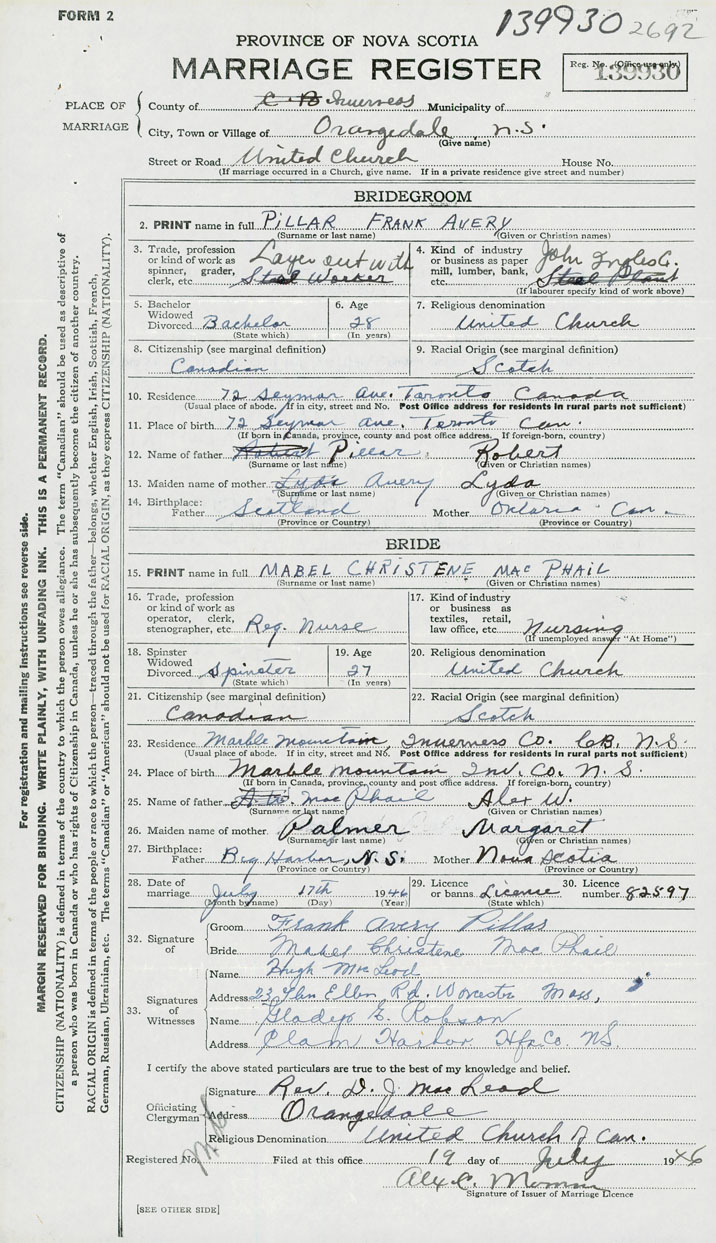 FORM 2
139930 2692
PROVINCE OF NOVA SCOTIA
MARRIAGE REGISTER
Reg. No. (Office use only)
139930
PLACE OF MARRIAGE
County of C B Inverness Municipality of
City, Town or Village of Orangedale N.S.
(Give name)
Street or Road United Church House No.
(If marriage occurred in a Church, give name. If in a private residence give street and number)
BRIDEGROOM
2. PRINT name in full PILLAR FRANK AVERY
(Surname or last name) (Given or Christian names)
3. Trade, profession or kind of work as spinner, grader, clerk, etc. Layer out with Steel Worker
4. Kind of industry or business as paper mill, lumber, bank, etc. John Inglis C. Steel Plant
(If labourer specify kind of work above)
5. Bachelor Widowed Divorced Bachelor
(State which)
6. Age 28
(In years)
7. Religious denomination
United Church
8. Citizenship (see marginal definition)
Canadian
9. Racial Origin (see marginal definition)
Scotch
10. Residence 72 Seymar Ave. Toronto Canada
(Usual place of abode. If in city, street and No. Post Office address for residents in rural parts not sufficient)
11. Place of birth 72 Seymar ave. Toronto Can.
(If born in Canada, province, county and post office address. If foreign-born, country)
12. Name of father Pillar Robert
(Surname or last name) (Given or Christian names)
13. Maiden name of mother Lyda Avery Lyda
(Surname or last name) (Given or Christian names)
14. Birthplace: Father Scotland Mother Ontario Can.
(Province or Country) (Province or Country)
BRIDE
15. PRINT name in full MABEL CHRISTENE MAC PHAIL
(Surname or last name) (Given or Christian names)
16. Trade, profession or kind of work as operator, clerk, stenographer, etc. Reg. Nurse
17. Kind of industry or business as textiles, retail, law office, etc. Nursing
(If unemployed answer "At Home")
18. Spinster Widowed Divorced Spinster
(State which)
19. Age 27
(In years)
20. Religious denomination
United Church
21. Citizenship (see marginal definition)
Canadian
22. Racial Origin (see marginal definition)
Scotch
23. Residence Marble mountain, Inverness Co. C.B. N.S
(Usual place of abode. If in city, street and No. Post Office address for residents in rural parts not sufficient)
24. Place of birth Marble mountain Inv. Co. N. S.
(If born in Canada, province, county and post office address. If foreign-born, country)
25. Name of father A. W. mac Phail Alex W.
(Surname or last name) (Given or Christian names)
26. Maiden name of mother Palmer Margaret
(Surname or last name) (Given or Christian names)
27. Birthplace: Father Big Harbor, N.S. Mother Nova Scotia
(Province or Country) (Province or Country)
28. Date of marriage July 17th 1946
(Month by name) (Day) (Year)
29. Licence or banns Licence
(State which)
30. Licence number 82597
32. Signature of
Groom Frank Avery Pillar
Bride Mabel Christene Mac Phail
33. Signatures of Witnesses
Name Hugh MacLeod
Address 23 Glen Ellen Rd. Worcester Mass,
Name Gladys E. Robson
Address Clam Harbor Hfx Co. N.S.
I certify the above stated particulars are true to the best of my knowledge and belief.
Officiating Clergyman
Signature Rev. D. J. MacLeod
Address Orangedale
Religious Denomination United Church of Can.
Registered No. Filed at this office 19 day of July 1946
Alex C.
Signature of Issuer of Marriage Licence
[SEE OTHER SIDE]
For registration and mailing instructions see reverse side.
MARGIN RESERVED FOR BINDING. WRITE PLAINLY, WITH UNFADING INK. THIS IS A PERMANENT RECORD.
CITIZENSHIP (NATIONALITY) is defined in terms of the country to which the person owes allegiance. The term "Canadian" should be used as descriptive of
a person who was born in Canada or who has rights of Citizenship in Canada, unless he or she has subsequently become the citizen of another country.
RACIAL ORIGIN is defined in terms of the people or race to which the person—traced through the father—belongs, whether English, Irish, Scottish, French,
German, Russian, Ukrainian, etc. The terms "Canadian" or "American" should not be used for RACIAL ORIGIN, as they express CITIZENSHIP (NATIONALITY).